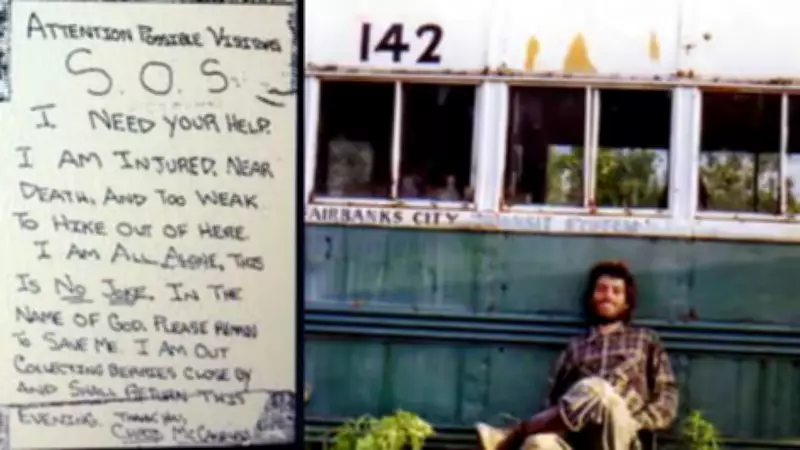 ATTENTION POSSIBLE VISITORS
S.O.S.
I NEED YOUR HELP.
I AM INJURED, NEAR
DEATH, AND TOO WEAK
TO HIKE OUT OF HERE
I AM ALL ALONE, THIS
IS NO JOKE. IN THE
NAME OF GOD, PLEASE REMAIN
TO SAVE ME. I AM OUT
COLLECTING BERRIES CLOSE BY
AND SHALL RETURN THIS
EVENING. THANK YOU,
CHRIS MCCANDLESS
142
FAIRBANKS CITY TRANSIT SYSTEM